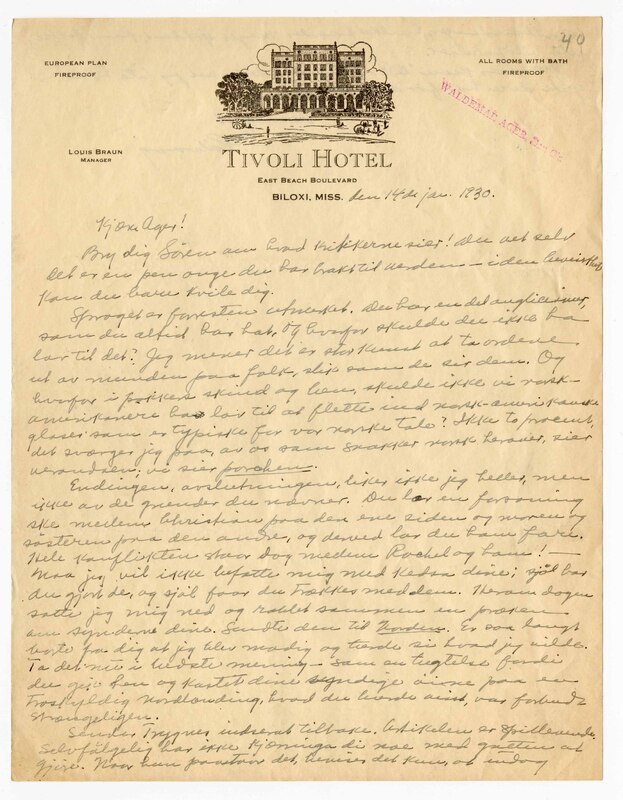 40
EUROPEAN PLAN
FIREPROOF
ALL ROOMS WITH BATH
FIREPROOF
WALDEMAR AGER
LOUIS BRAUN
MANAGER
TIVOLI HOTEL
EAST BEACH BOULEVARD
BILOXI, MISS. den 14de jan. 1930.
Kjære Ager!
Bry dig Søren om hvad kritikerne sier! Du vet selv
det er en pen unge du har bragt til verden — i den bevissthet
kan du bare hvile dig.
Sproget er forresten utmerket. Du har en del anglicismer,
som du altid har hat. Og hvorfor skulde du ikke ha
lov til det? Jeg mener det er stor kunst at ta ordene
ut av munden paa folk, slik som de sir dem. Og
hvorfor i pokkers skind og ben, skulde ikke vi norsk-
amerikanere ha lov til at flette ind norsk-amerikanske
gloser som er typiske for vor norske tale? Ikke to procent,
det sværger jeg paa, av os som snakker norsk herover, sier
verandaen, vi sier porchen.
Endingen, avslutningen, liker ikke jeg heller, men
ikke av de grunder du nævner. Du lar en forsoning
ske mellem Christian paa den ene siden og moren og
søsteren paa den andre, og derved lar du ham fare.
Hele konflikten staar dog mellem Rachel og ham! —
Naa jeg vil ikke befatte mig med dine; sjøl har
du gjort de, og sjøl faar du trækkes med dem. Herom dagen
satte jeg mig ned og rablet sammen en præken
om synderne dine. Sendte den til Norden. Er saa langt
borte fra dig at jeg blev modig og tordde si hvad jeg vilde.
Ta det nu i bedste mening — som en tugtelse fordi
du gik hen og kastet dine syndige øine paa en
troskyldig Nordlænding, hvad du burde visst, var forbudt
strengeligen.
Sender indsendt tilbake. Artikelen er
Selvfølgelig har ikke kjæringa di noe med at
gjøre. Naar hun paastaar det, bevises det kun, at